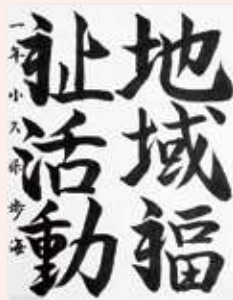 地域福
祉活動
一年 小久保歩海